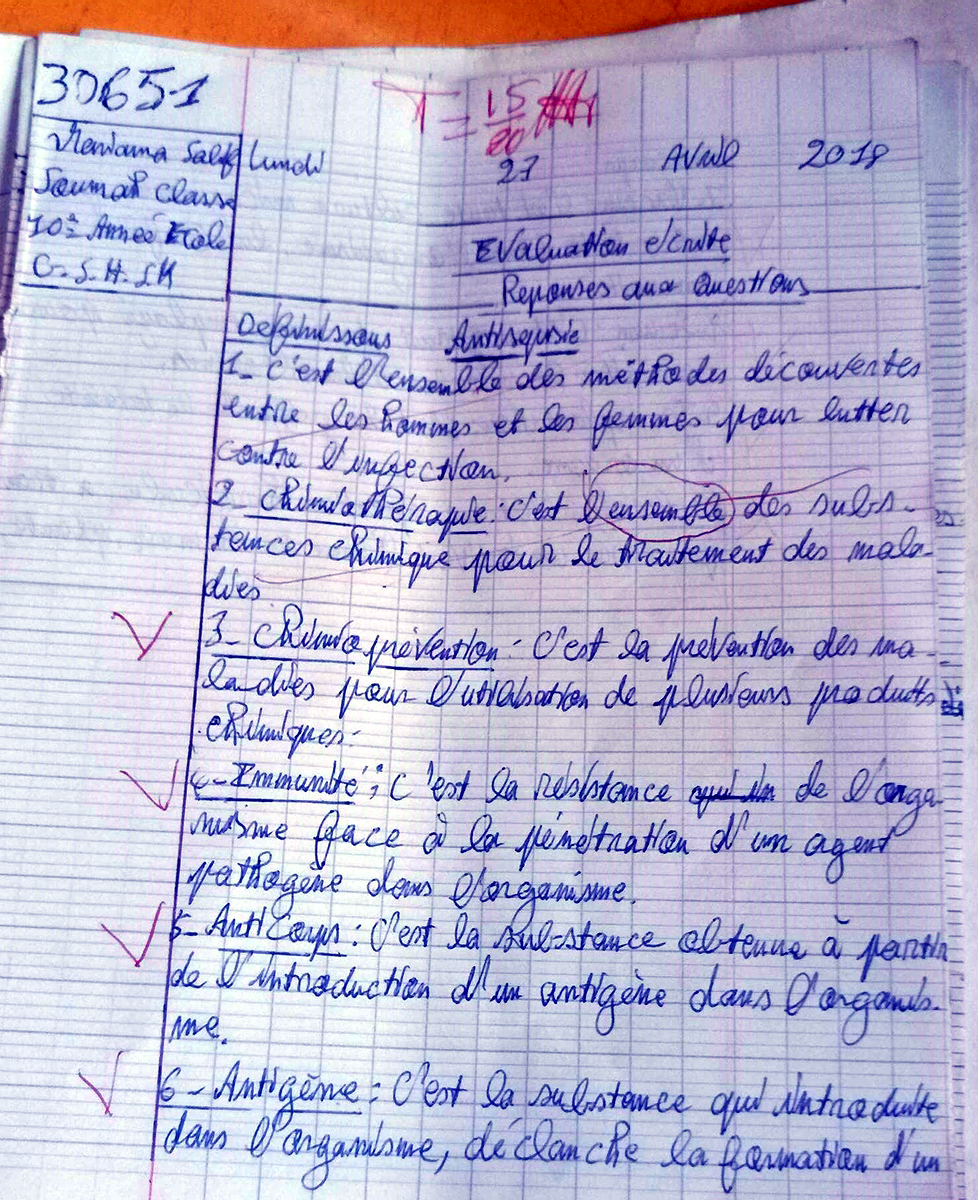 30651
T = 15/20
Mariama Salif
Soumah Classe
10e Année Ecole
C. S. H. SK
Lundi 27 Avril 2018
Evaluation ecrite
Reponses aux Questions
Definissons Antisepsie
1- C'est l'ensemble des méthodes découvertes
entre les hommes et les femmes pour lutter
contre l'infection.
2- chimiothérapie : C'est l'ensemble des subs-
tances chimique pour le traitement des mala-
dies.
3- chimioprévention : C'est la prévention des ma-
ladies pour l'utilisation de plusieurs produits
chimiques.
4- Immunité : C'est la résistance de l'orga-
nisme face à la pénétration d'un agent
pathogène dans l'organisme.
5- AntiCorps : C'est la substance obtenue à partir
de l'introduction d'un antigène dans l'organis-
me.
6- Antigène : C'est la substance qui introduite
dans l'organisme, déclanche la formation d'un